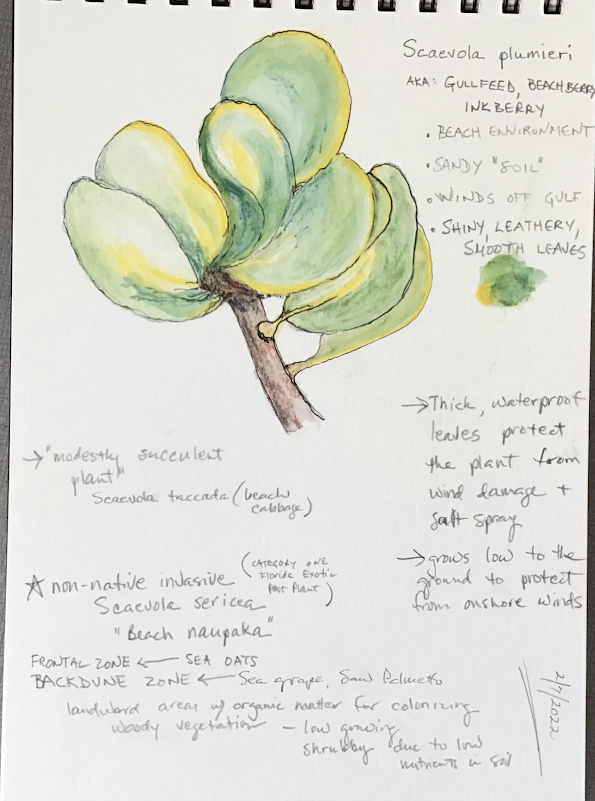 Scaevola plumieri
AKA: GULLFEED, BEACHBERRY
INKBERRY
• BEACH ENVIRONMENT
• SANDY "SOIL"
• WINDS OFF GULF
• SHINY, LEATHERY,
SMOOTH LEAVES
→ Thick, waterproof
leaves protect
the plant from
wind damage +
salt spray
→ grows low to the
ground to protect
from onshore winds
→ "modestly succulent
plant"
Scaevola taccada (beach
cabbage)
☆ non-native invasive (CATEGORY ONE
Florida Exotic
Pest Plant)
Scaevola sericea
"Beach naupaka"
FRONTAL ZONE ← SEA OATS
BACKDUNE ZONE ← Sea grape, Saw Palmetto
landward areas w/ organic matter for colonizing
woody vegetation - low growing
shrubby due to low
nutrients in soil
2/7/2022